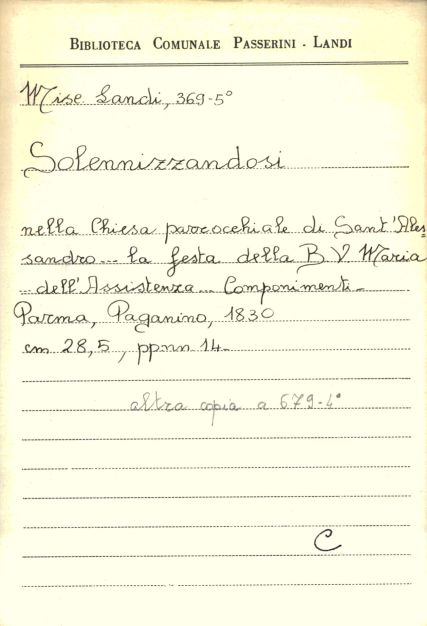 BIBLIOTECA COMUNALE PASSERINI - LANDI
Mise Landi, 369-5°
Solennizzandosi
nella Chiesa parrocchiale di Sant'Ales=
sandro... la festa della B. V. Maria
... dell'Assistenza... Componimenti.-
Parma, Paganino, 1830
cm 28,5, pp.nn. 14.-
altra copia a 679-4°
C